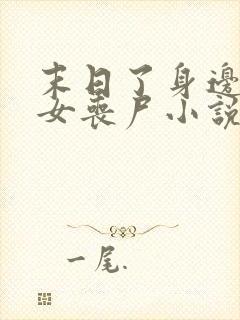 末日了身邊
女喪尸小說
一尾.